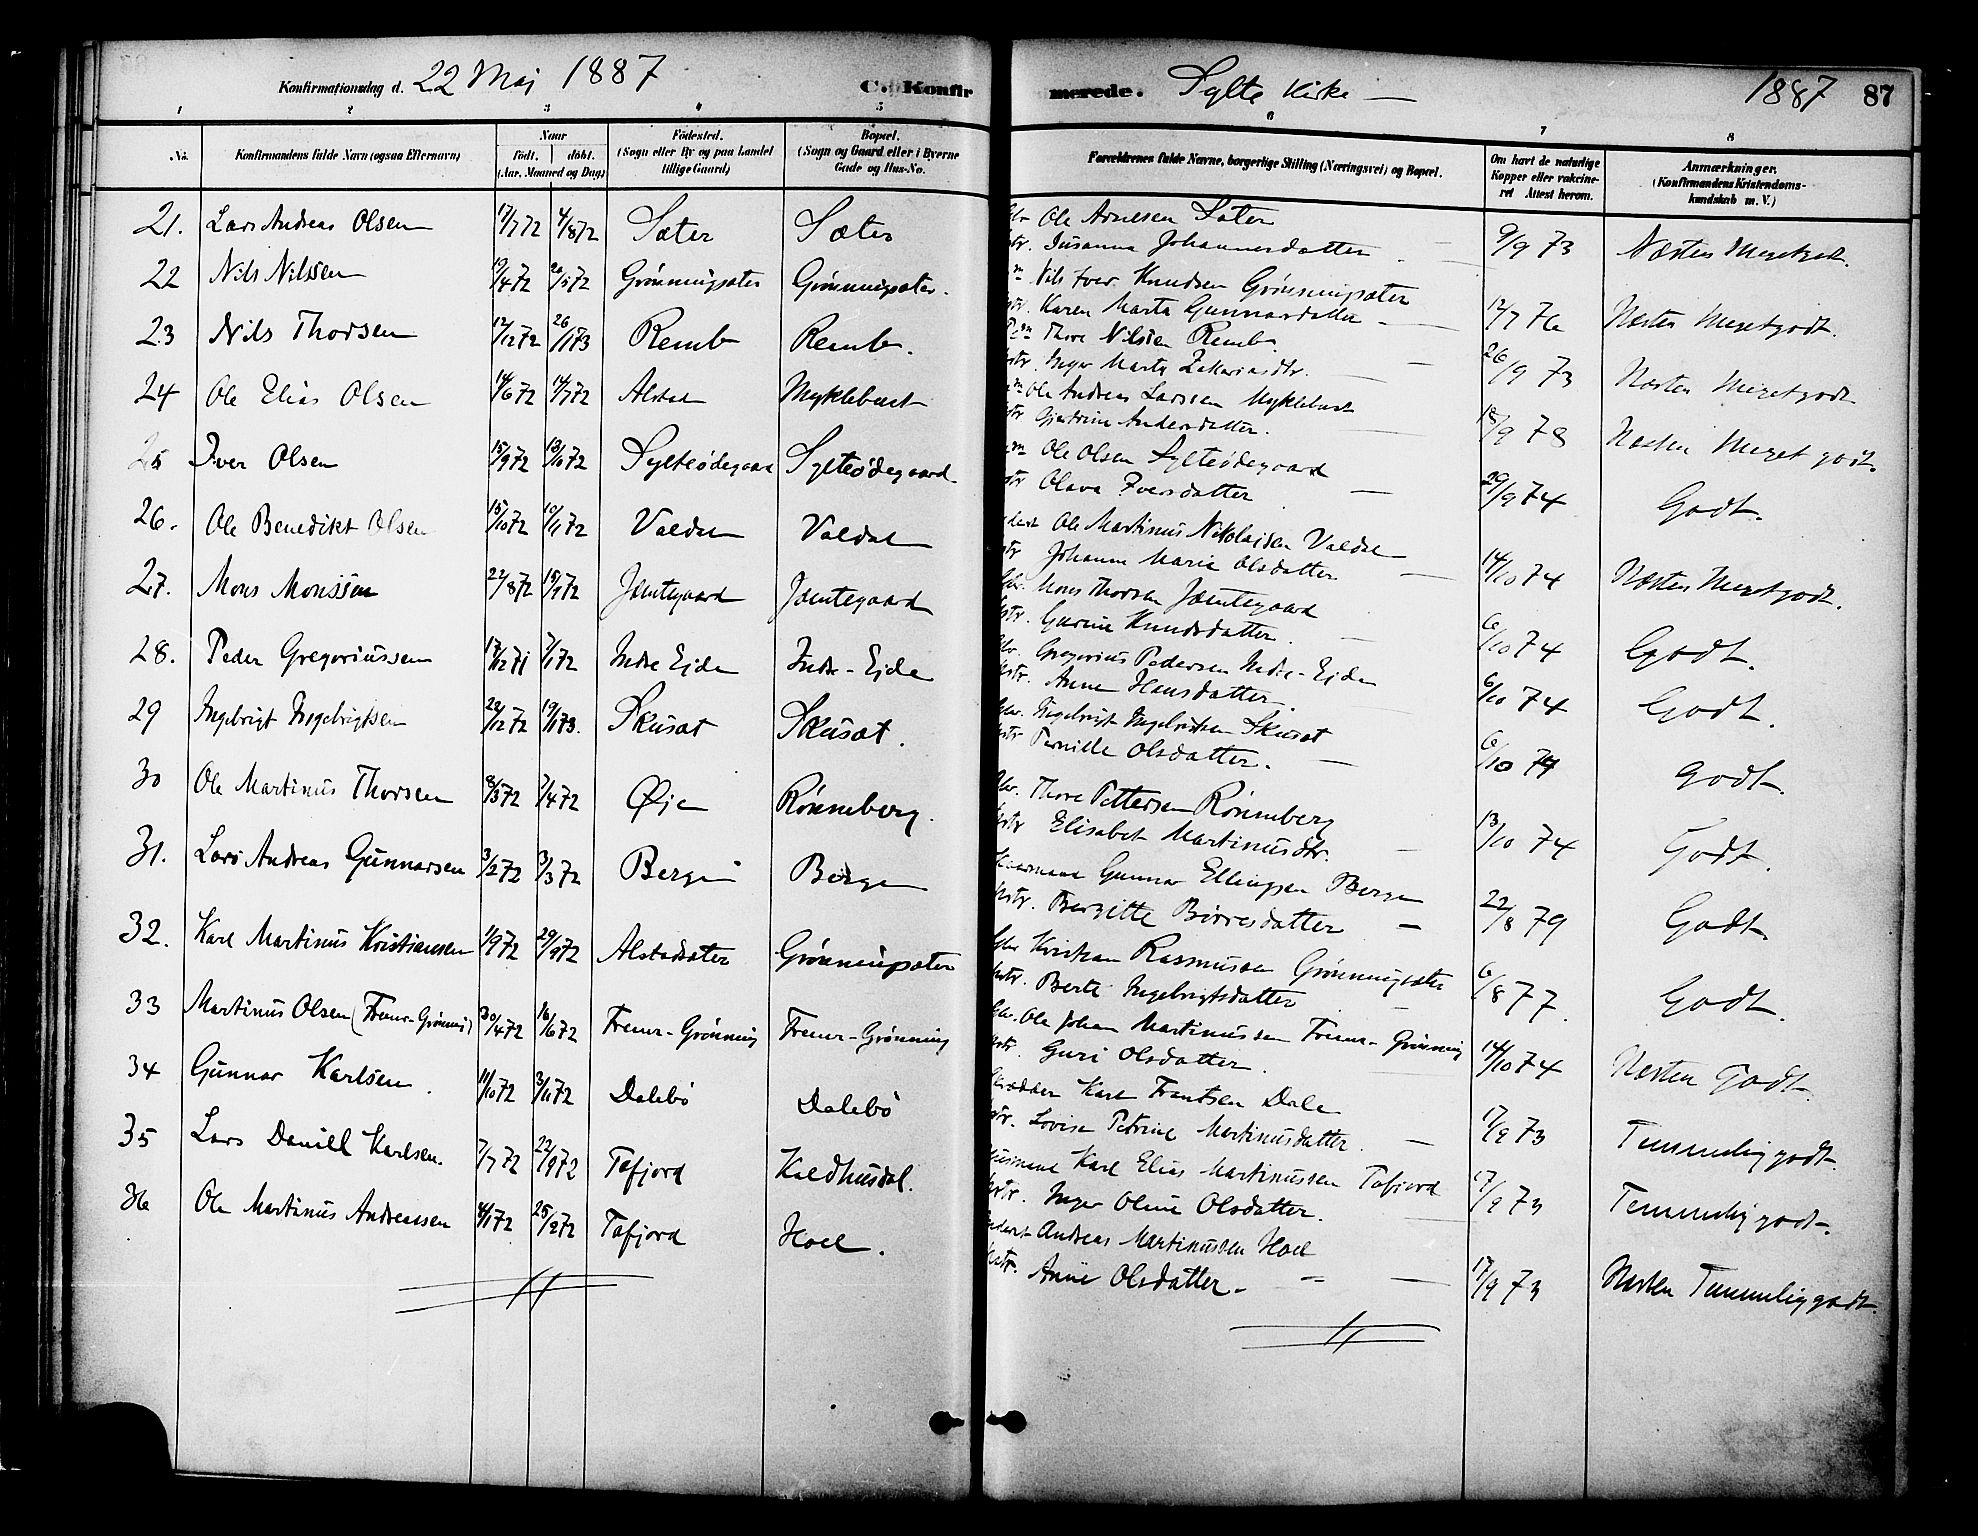 Konfirmationsdag d. 22 Mai 1887
C. Konfirmerede. Sylte Kirke — 1887 87
1 2 3 4 5 6 7 8
No. Konfirmandens fulde Navn (ogsaa Efternavn) Naar født. døbt. (Aar, Maaned og Dag) Fødested. (Sogn eller By og paa Landet tillige Gaard) Bopæl. (Sogn og Gaard eller i Byerne Gade og Hus-No. Forældrenes fulde Navne, borgerlige Stilling (Næringsvei) og Bopæl. Om havt de naturlige Kopper eller vakcineret Attest herom. Anmærkninger. (Konfirmandens Kristendomskundskab m. V.)
21. Lars Andreas Olsen 17/7 72 4/8 72 Sæter Sæter Ole Arnesen Sæter 9/9 73 Næsten Megetgodt.
Susanna Johannesdatter
22 Nils Nilssen 19/4 72 20/5 72 Grønningsæter Grønningsæter. Nils Iver Knudsen Grønningsæter 12/7 76 Næsten Megetgodt.
Karen Marta Gunnarsdatter
23 Nils Thorsen 12/12 72 26/1 73 Remb Remb. Thore Nilsen Remb. 26/9 73 Næsten Megetgodt
Inger Marta Zakariasdtr.
24 Ole Elias Olsen 14/6 72 14/7 72 Alstad Myklebust Ole Andreas Larssen Myklebust 18/9 78 Næsten Meget godt.
Gjertrine Andersdatter.
25 Iver Olsen 15/9 72 13/10 72 Sylteødegaard Sylteødegaard Ole Olsen Sylteødegaard 29/9 74 Godt.
Olava Iversdatter
26. Ole Benedikt Olsen 15/10 72 10/11 72 Valdal Valdal Ole Martinus Nikolaisen Valdal 14/10 74 Næsten Megetgodt.
Johanne Marie Olsdatter
27. Mons Monssen 22/8 72 15/9 72 Jæmtegaard Jæmtegaard Mons Thorsen Jæmtegaard 6/10 74 Godt.
Gurine Knudsdatter.
28. Peder Gregoriussen 17/12 71 7/1 72 Indre Ejde Indre-Ejde Gregorius Pedersen Indre-Ejde 6/10 74 Godt.
Anne Hansdatter.
29 Ingebrigt Ingebrigtsen 22/12 72 19/1 73. Skusæt Skusæt. Ingebrigt Ingebrigtsen Skusæt 6/10 74 Godt.
Pernille Olsdatter.
30 Ole Martinus Thorsen 8/3 72 7/4 72 Øje Rønneberg. Thore Pettersen Rønneberg 13/10 74 Godt.
Elisabet Martinusdtr.
31. Lars Andreas Gunnarsen 3/2 72 3/3 72 Berge Berge Gunnar Ellingsen Berge 22/8 79 Godt.
Bergitte Børresdatter
32. Karl Martinus Kristiansen 1/9 72 29/9 72 Alstadsæter Grønningsæter Kristian Rasmussen Grønningsæter 6/8 77. Godt.
Berte Ingebrigtsdatter
33 Martinus Olsen (Fremr-Grønning) 30/4 72 16/6 72 Fremr-Grønning Fremr-Grønning Ole Johan Martinussen Fremr-Grønning 14/10 74 Næsten Godt.
Guri Olsdatter.
34 Gunnar Karlsen. 11/10 72 3/11 72 Dalebø Dalebø Karl Frantsen Dale 17/9 73 Temmelig godt.
Lovise Petrine Martinusdatter.
35 Lars Daniel Karlsen. 7/7 72 22/9 72 Tafjord Kaldhusdal. Karl Elias Martinussen Tafjord 17/9 73 Temmelig godt.
Inger Oline Olsdatter.
36 Ole Martinus Andreassen 4/1 72 25/2 72 Tafjord Hoel. Andreas Martinussen Hoel 17/9 73 Næsten Temmelig godt.
Anne Olsdatter.